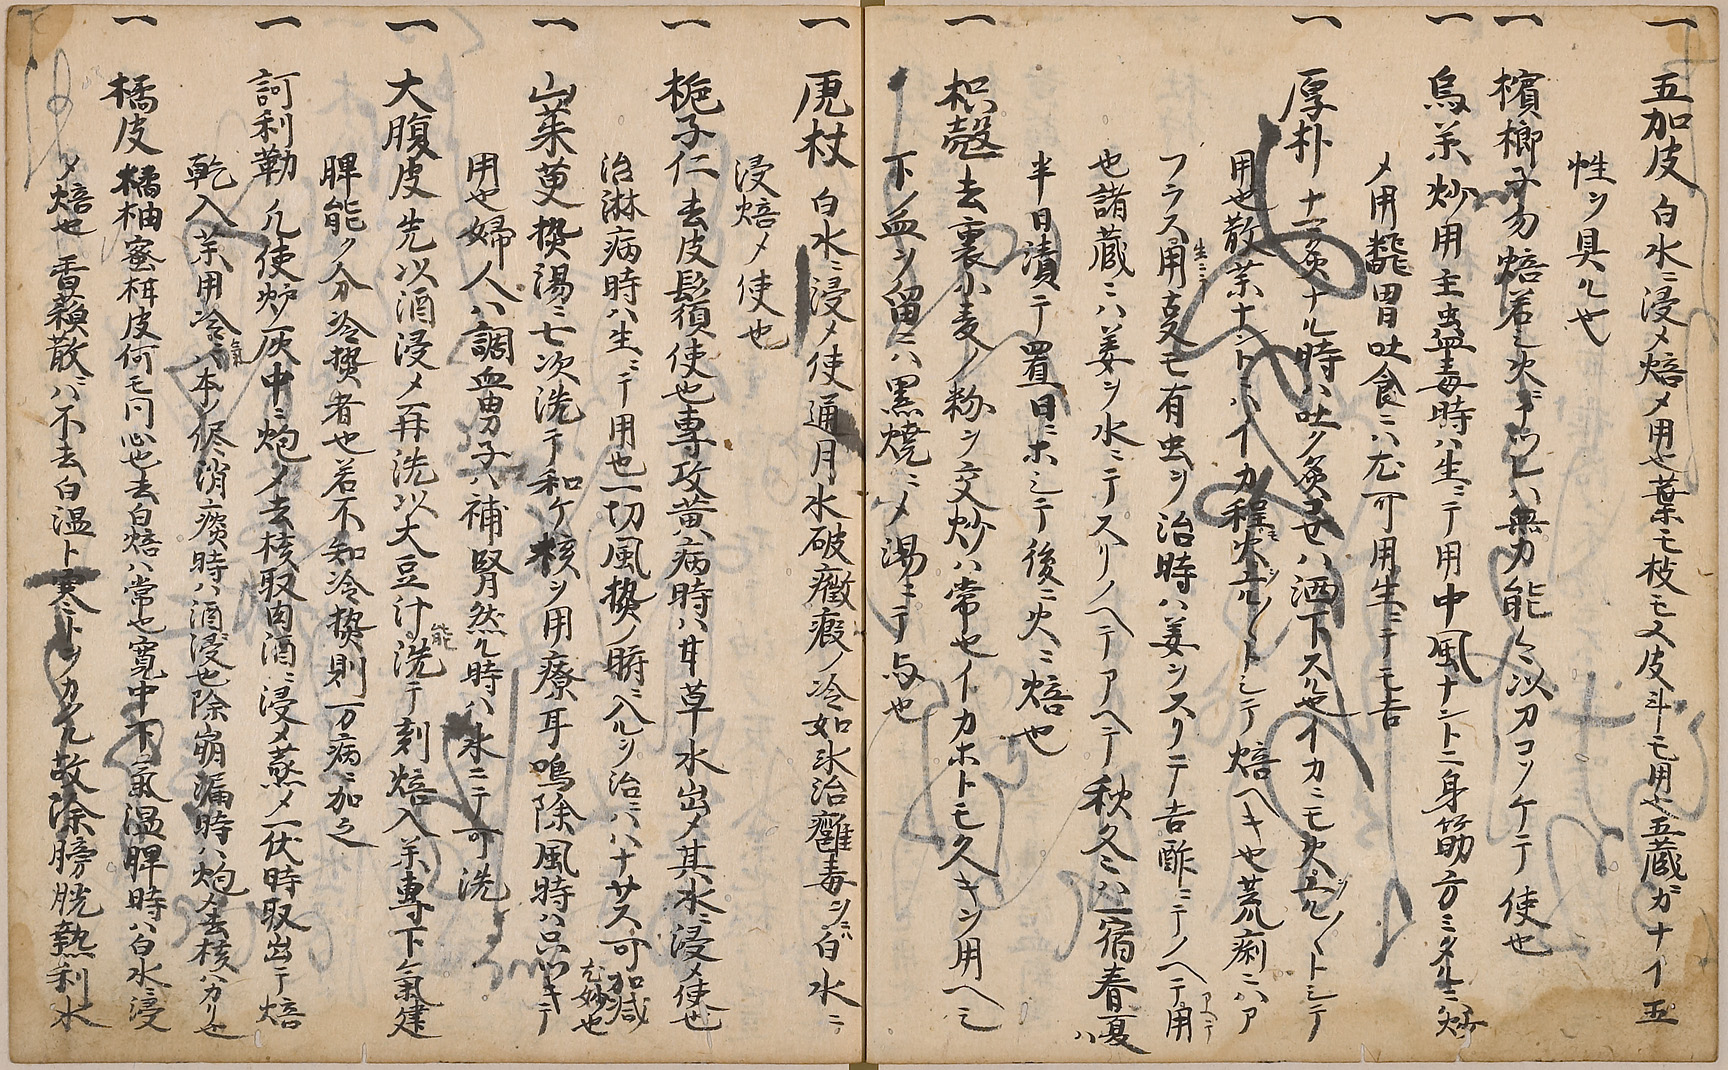 一 五加皮 白水ニ浸メ焙メ用也葉モ枝モ入皮斗モ用也五蔵ガナイ五
性ヲ具ル也
一 檳榔子勿焙若シ火ニテハ無力能々以刀コソケテ使也
一 烏茱炒用主虫蛊毒時ハ生ニテ用中風ナント一身筋方ミタルニハ炒
メ用翻胃吐食ニハ尤可用生ニテモ吉
一 厚朴 十二炙ナル時ハ吐ク炙セハ洒下スル也イカニモ火ニトシテ
用也散茶ナントニハイカ程火トシテ焙ヘキ也荒痢ニハア
フラス用支モ有虫ヲ治時ハ姜ヲスリテ吉酢ニテノヘテ用
也諸蔵ニハ姜ヲ水ニテスリノヘテアヘテ秋冬ニハ一宿春夏ハ
半日漬テ置日ニホシテ後ニ火ニ焙也
一 枳殻 去裏小麦ノ粉ヲ交炒ハ常也イカホトモ久キヲ用ヘシ
下ノ血ヲ留ニハ黒焼ニメ湯ニテ与也
一 虎杖 白水ニ浸メ使通月水破癥瘕ノ冷如氷治癰毒ヲニハ白水ニテ
浸焙メ使也
一 梔子仁 去皮鬚須使也専攻黄病時ハ甘草水出メ其水ニ浸メ使也
治淋病時ハ生ニテ用也一切風熱ノ腑ニ入ルヲ治ニハハナサス可加減尤妙也
一 山茱萸 熱湯ニ七次洗テ和ケ核ヲ用療耳鳴除風時ハ只ツキテ
用也婦人ハ調血男子ハ補腎然ル時ハ水ニテ可洗
一 大腹皮 先以酒浸メ再洗以大豆汁能洗テ刻焙入茶専下氣建
脾能ク分冷熱者也若不知冷熱則一万病ニ加之
一 訶利勒 凡使炉灰中ニ炮メ去核取肉酒ニ浸メ蒸メ一伏時取出テ焙
乾入茶用冷氣ハ本ノ侭消痰時ハ酒浸也除崩漏時ハ炮去核ハカリ也
一 橘皮 橘柚蜜柑皮何モ同心也去白焙ハ常也寛中下氣温脾時ハ白水ニ浸
メ焙也 香蘇散ニハ不去白温ト寒トヲカヌル故除膀胱熱利水